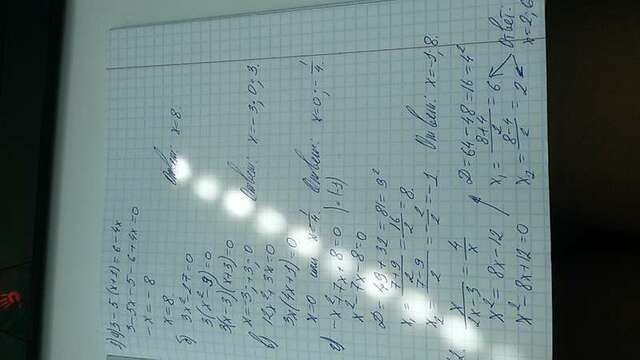 а) 3-5(x+1)=6-4x
3-5x-5-6-4x=0
-x=-8
x=8 Ответ: x=8.
б) 3x²-27=0
3(x²-9)=0
3(x-3)(x+3)=0
x=3;+3;0 Ответ: x=-3;0;3.
в) 12x²+3x=0
3x(4x+1)=0
x=0 или x=1/4. Ответ: x=0;-1/4.
г) -x²+7x+8=0 )=(-1)
x²-7x-8=0
D=49+32=81=9²
x₁=(7+9)/2=16/2=8.
x₂=(7-9)/2=-2/2=-1 Ответ: x=-1;8.
x/(2x-3)=4/x D=64-48=16=4²
x²=8x-12 x₁=(8+4)/2=6
x²-8x+12=0 x₂=(8-4)/2=2 Ответ:
x=2;6